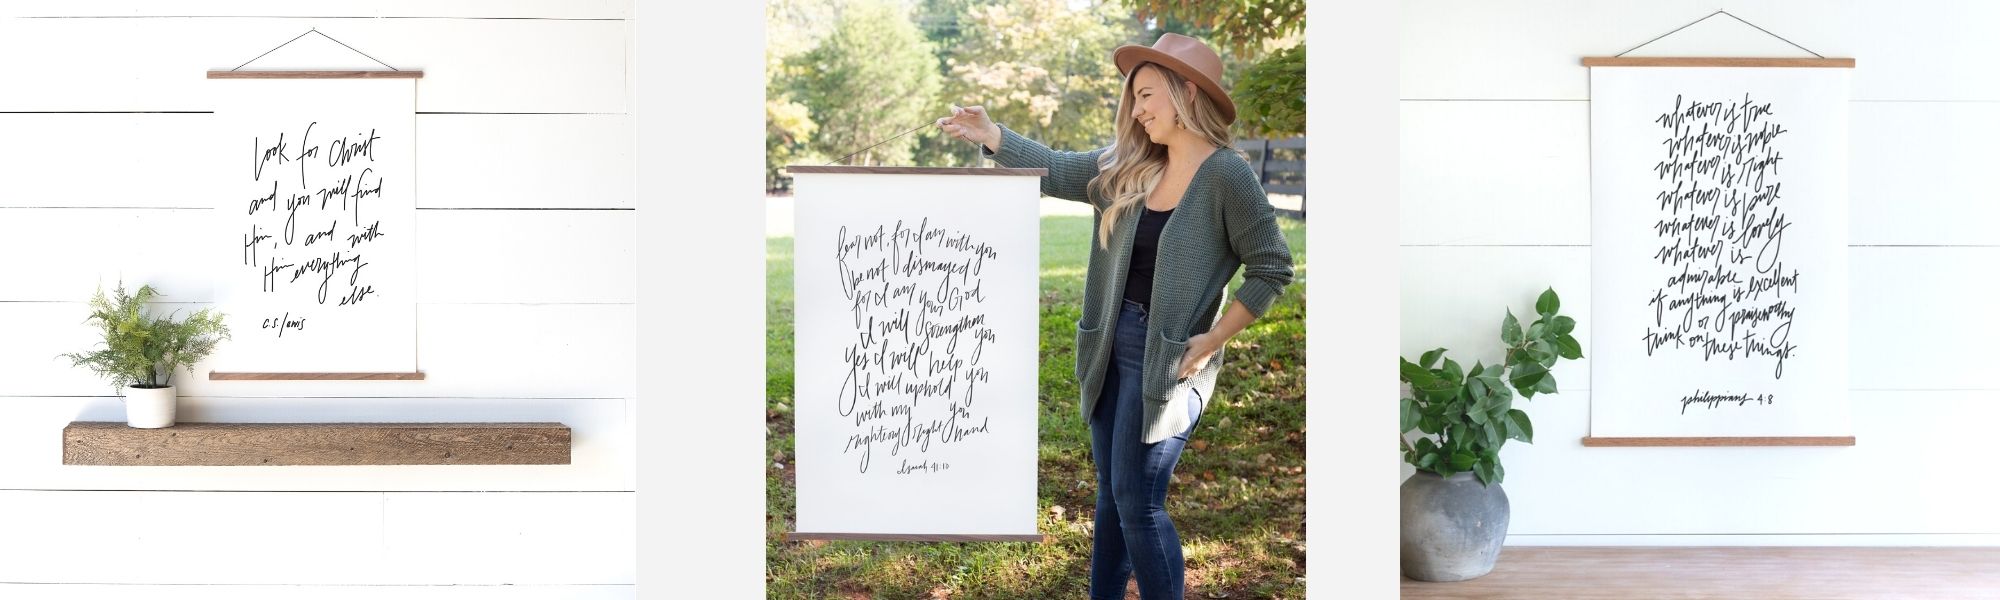 Look for Christ
and you will find
Him, and with
Him everything
else.
c.s. lewis
fear not, for I am with you
be not dismayed
for I am your God
I will strengthen you
yes I will help you
I will uphold you
with my
righteous right hand
Isaiah 41:10
whatever is true
whatever is noble
whatever is right
whatever is pure
whatever is lovely
whatever is
admirable
if anything is excellent
or praiseworthy
think on these things.
philippians 4:8